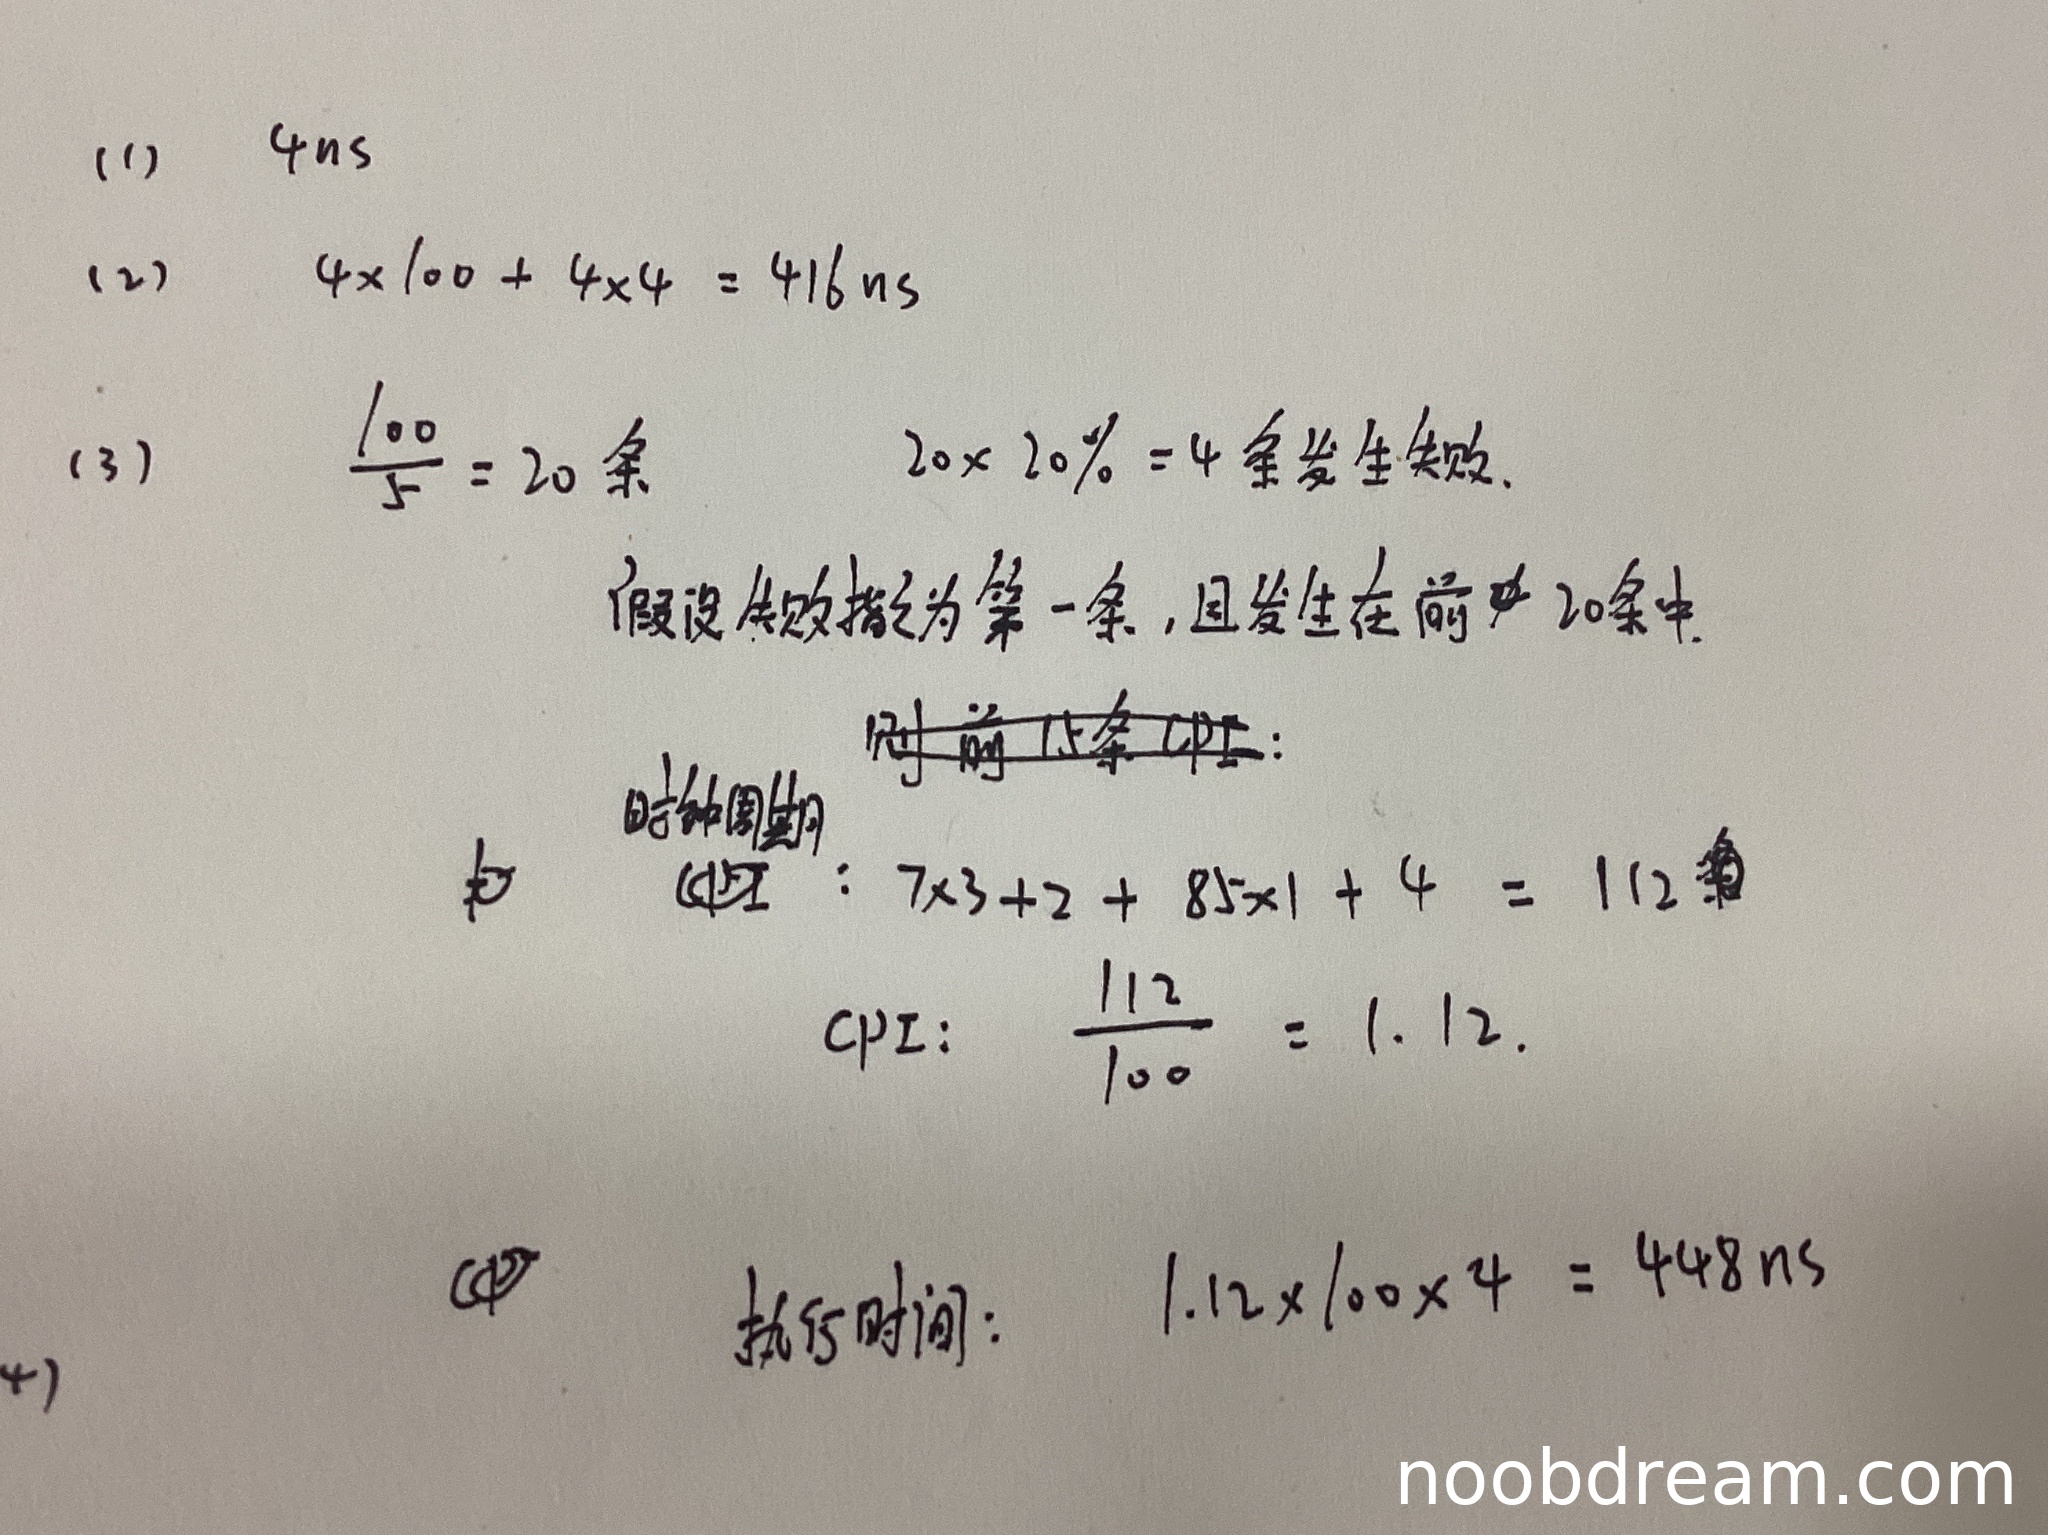 (1) 4ns
(2) 4×100 + 4×4 = 416ns
(3) 100/5 = 20 条 20×20% = 4 条发生失败.
假设失败指令为第一条,且发生在前 20条中.
则前15条CPI:
时钟周期
CPI : 7×3+2 + 85×1 + 4 = 112
CPI: 112/100 = 1.12.
执行时间: 1.12×100×4 = 448ns
4)
noobdream.com